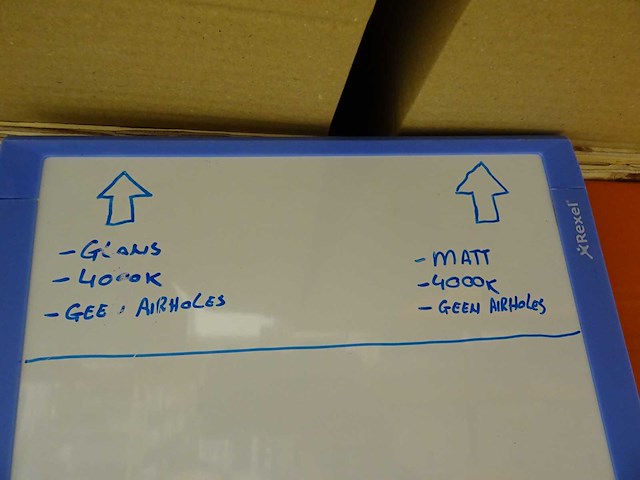 - GLANS
- 4000K
- GEEN AIRHOLES
- MATT
- 4000K
- GEEN AIRHOLES
Rexel